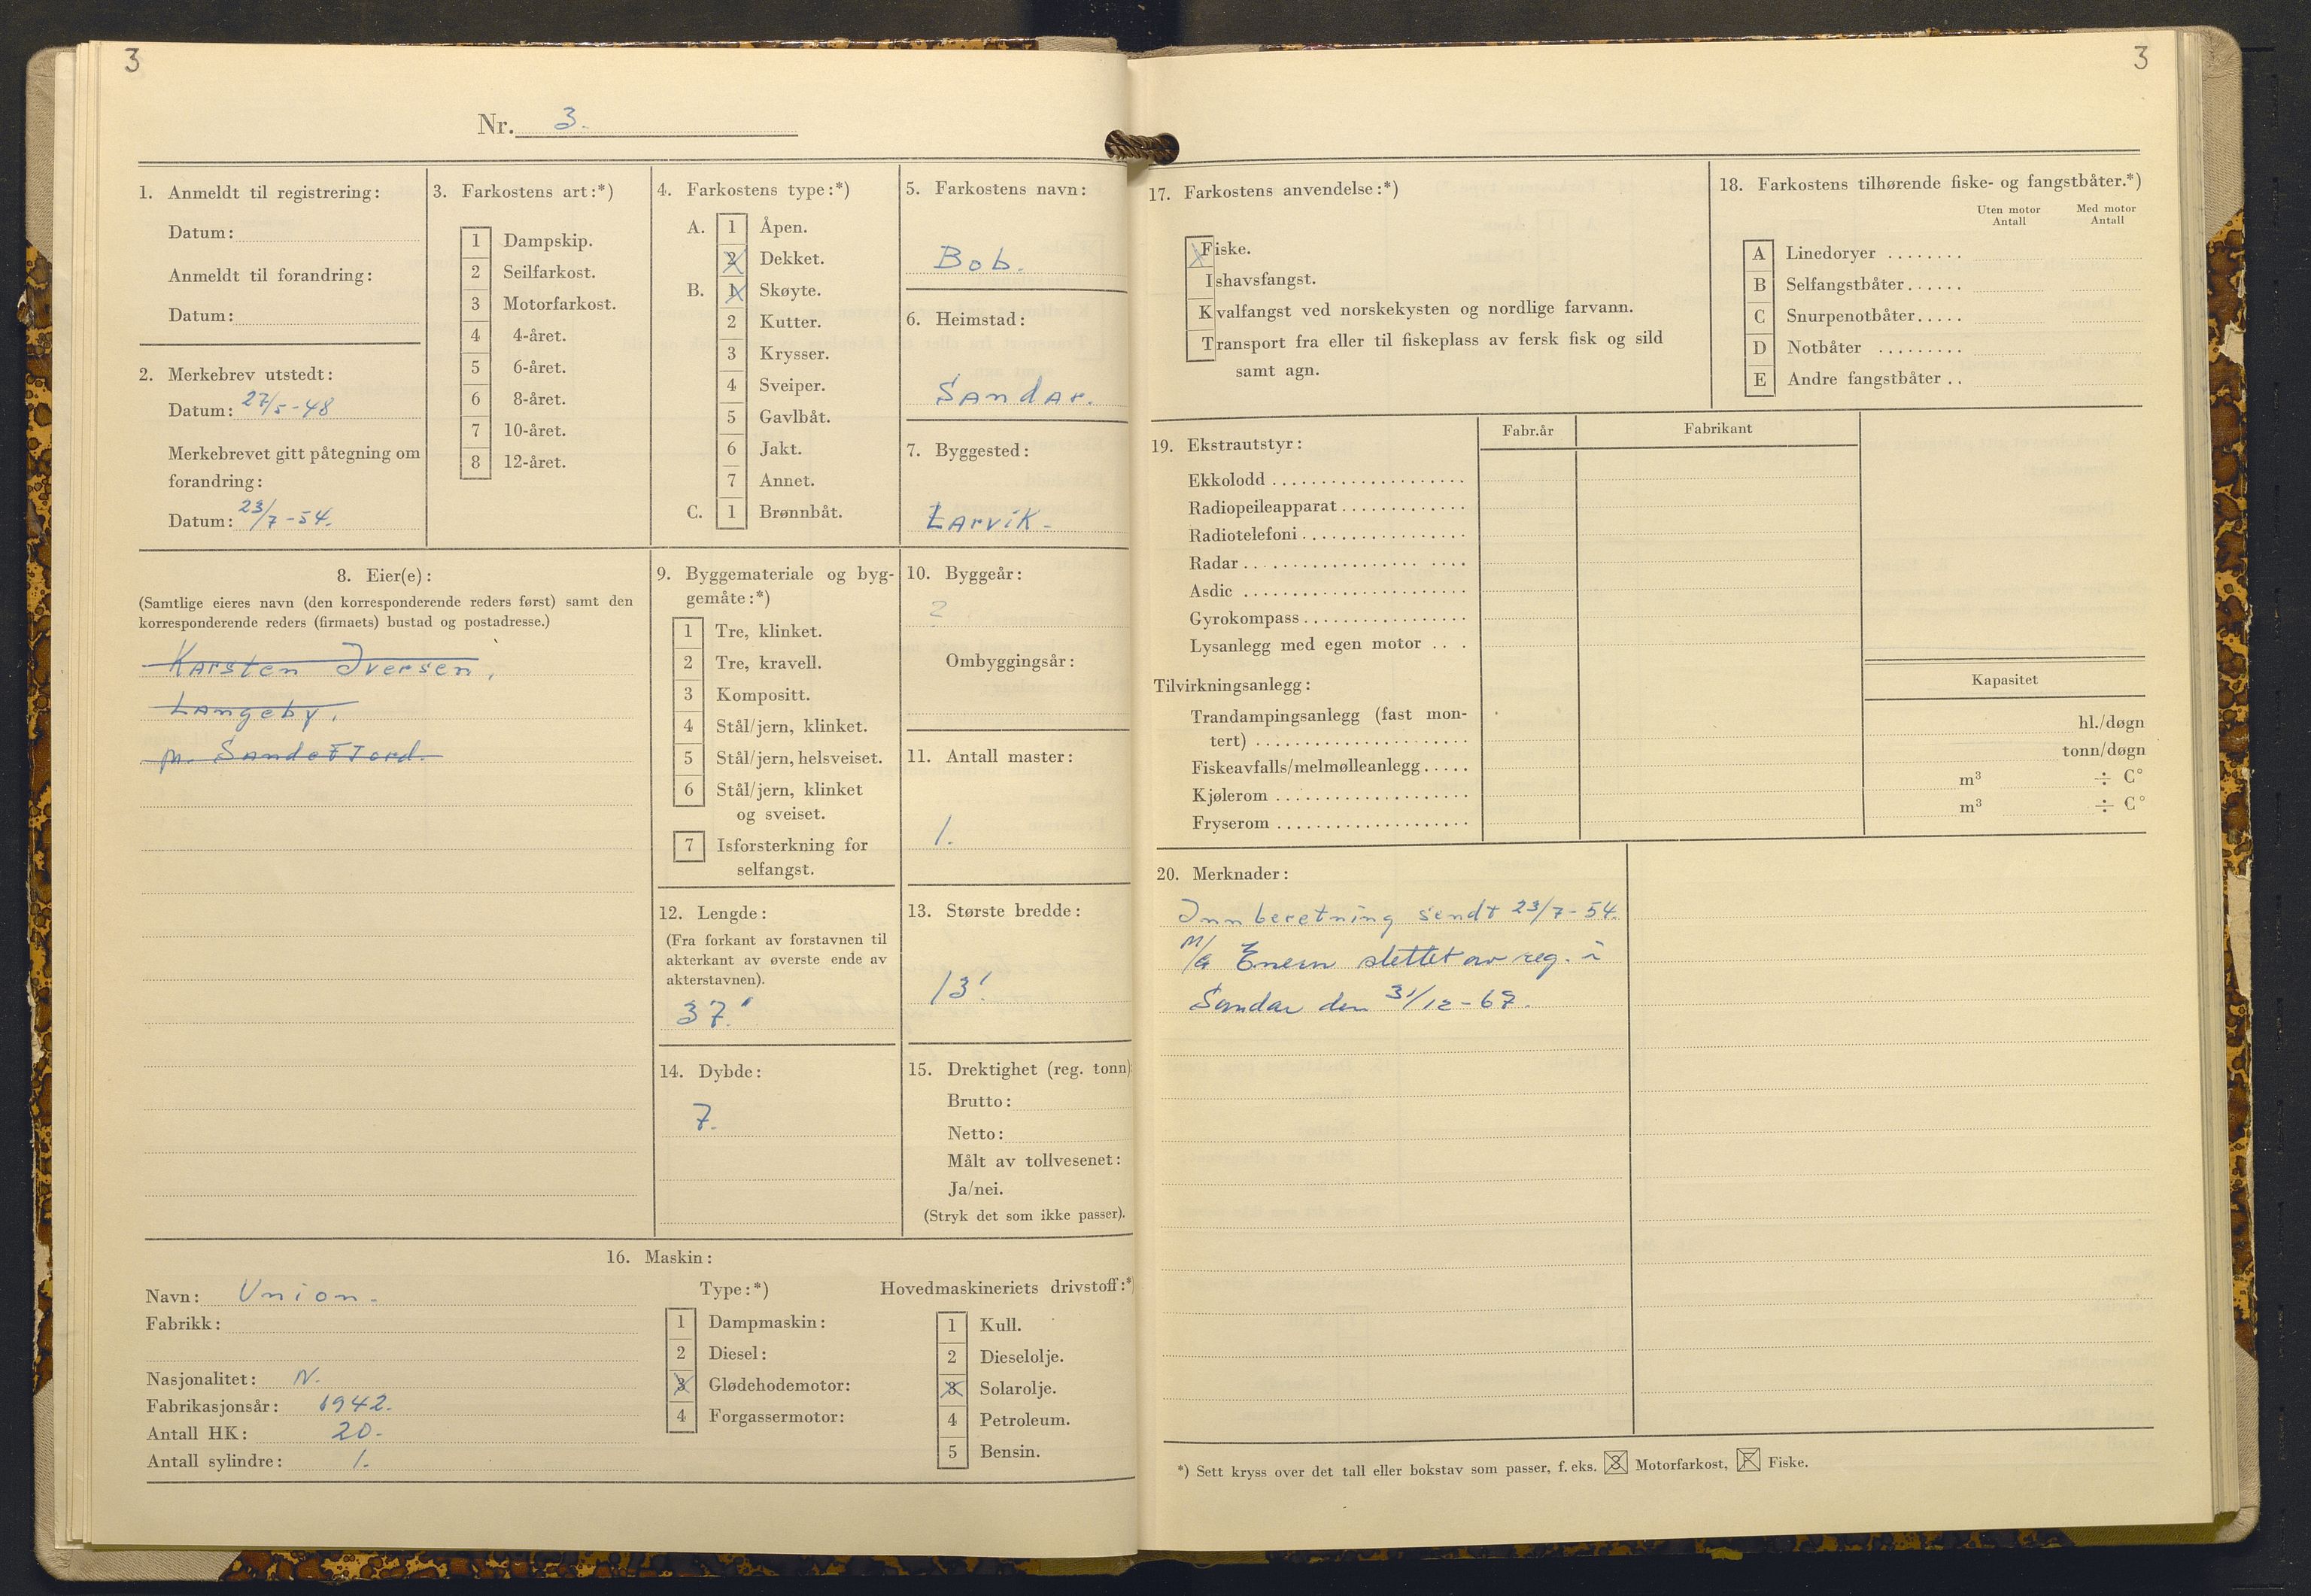 3
Nr. 3.
1. Anmeldt til registrering:
Datum:
Anmeldt til forandring:
Datum:
2. Merkebrev utstedt:
Datum: 27/5-48
Merkebrevet gitt påtegning om
forandring:
Datum: 23/7-54.
3. Farkostens art:*)
1 Dampskip.
2 Seilfarkost.
3 Motorfarkost.
4 4-året.
5 6-året.
6 8-året.
7 10-året.
8 12-året.
4. Farkostens type:*)
A. 1 Åpen.
2 Dekket.
B. 1 Skøyte.
2 Kutter.
3 Krysser.
4 Sveiper.
5 Gavlbåt.
6 Jakt.
7 Annet.
C. 1 Brønnbåt.
5. Farkostens navn:
Bob.
6. Heimstad:
Sandar.
7. Byggested:
Larvik.
8. Eier(e):
(Samtlige eieres navn (den korresponderende reders først) samt den
korresponderende reders (firmaets) bustad og postadresse.)
Karsten Iversen,
Langeby,
9. Byggemateriale og byg-
gemåte:*)
1 Tre, klinket.
2 Tre, kravell.
3 Kompositt.
4 Stål/jern, klinket.
5 Stål/jern, helsveiset.
6 Stål/jern, klinket
og sveiset.
7 Isforsterkning for
selfangst.
10. Byggeår:
?
Ombyggingsår:
11. Antall master:
1.
12. Lengde:
(Fra forkant av forstavnen til
akterkant av øverste ende av
akterstavnen).
37.'
13. Største bredde:
13.'
14. Dybde:
7.
15. Drektighet (reg. tonn)
Brutto:
Netto:
Målt av tollvesenet:
Ja/nei.
(Stryk det som ikke passer).
16. Maskin:
Navn: Union.
Fabrikk:
Nasjonalitet: N.
Fabrikasjonsår: 1942.
Antall HK: 20.
Antall sylindre: 1.
Type:*)
1 Dampmaskin:
2 Diesel:
3 Glødehodemotor:
4 Forgassermotor:
Hovedmaskineriets drivstoff:*)
1 Kull.
2 Dieselolje.
3 Solarolje.
4 Petroleum.
5 Bensin.
3
17. Farkostens anvendelse:*)
Fiske.
Ishavsfangst.
Kvalfangst ved norskekysten og nordlige farvann.
Transport fra eller til fiskeplass av fersk fisk og sild
samt agn.
18. Farkostens tilhørende fiske- og fangstbåter.*)
Uten motor Antall
Med motor Antall
A Linedoryer ........
B Selfangstbåter......
C Snurpenotbåter.....
D Notbåter .........
E Andre fangstbåter ..
19. Ekstrautstyr:
Fabr.år
Fabrikant
Ekkolodd ....................
Radiopeileapparat .............
Radiotelefoni .................
Radar .......................
Asdic .......................
Gyrokompass .................
Lysanlegg med egen motor ....
Tilvirkningsanlegg:
Trandampingsanlegg (fast mon-
tert) ......................
Fiskeavfalls/melmølleanlegg.....
Kjølerom ....................
Fryserom ....................
Kapasitet
hl./døgn
tonn/døgn
m³ ÷ C°
m³ ÷ C°
20. Merknader:
Innberetning sendt 23/7-54.
slettet av reg. i
Sandar den 31/12-67.
*) Sett kryss over det tall eller bokstav som passer, f. eks. 3 Motorfarkost, F Fiske.